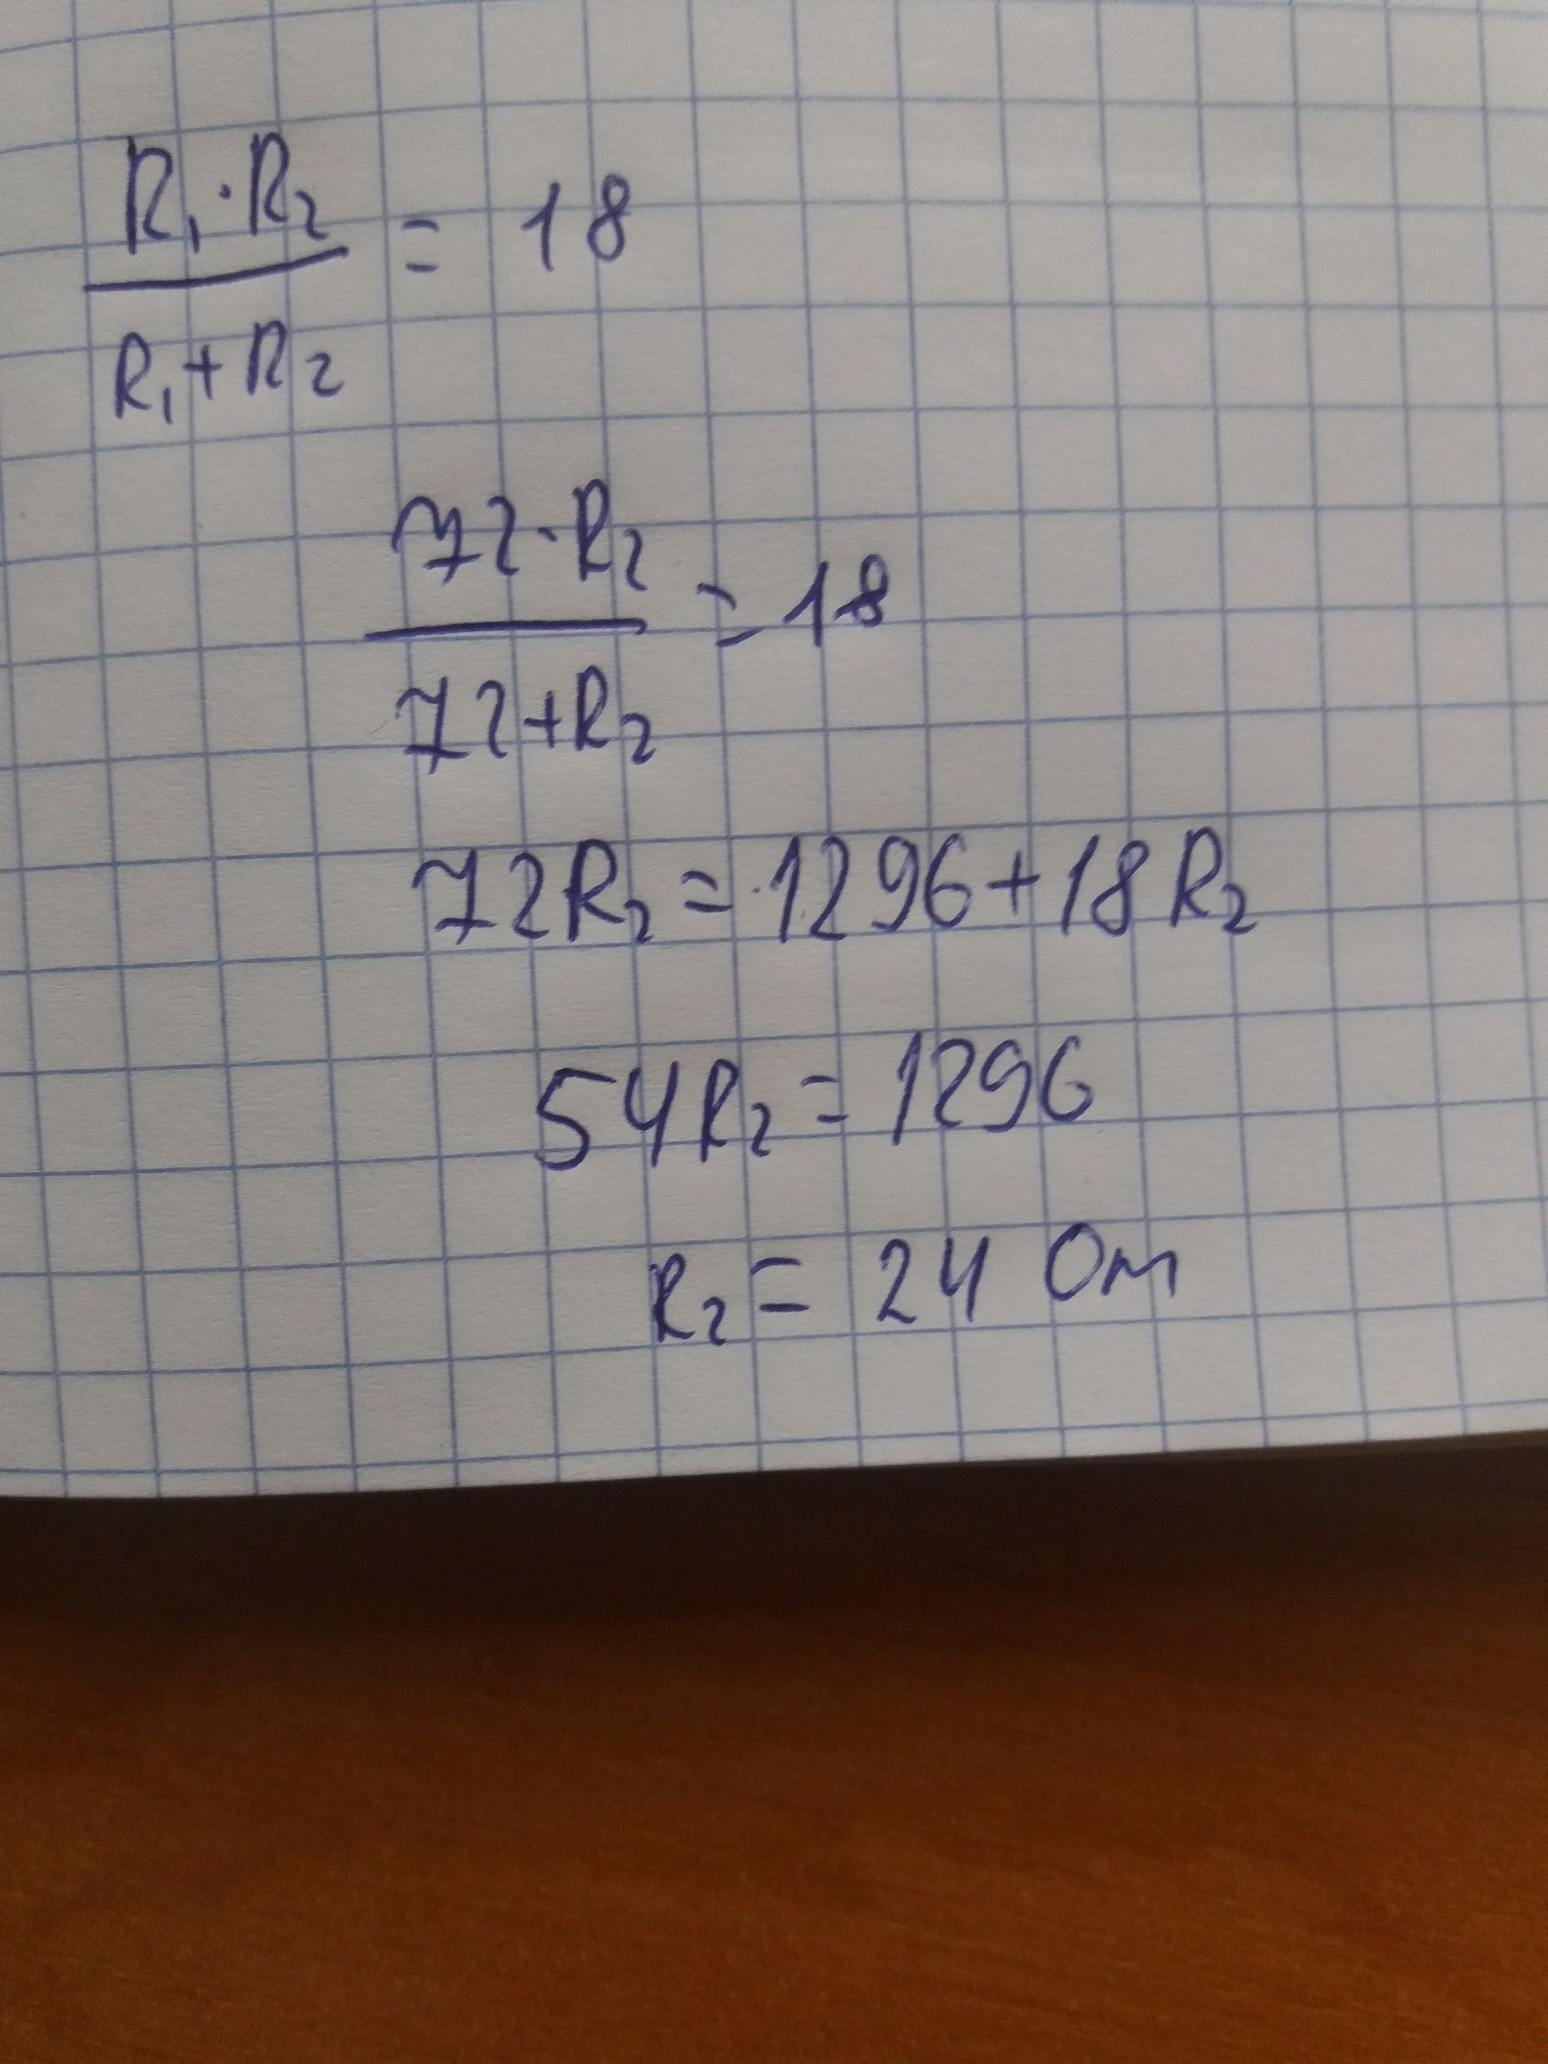 R₁·R₂ / R₁+R₂ = 18
72·R₂ / 72+R₂ = 18
72R₂ = 1296 + 18R₂
54R₂ = 1296
R₂ = 24 Ом